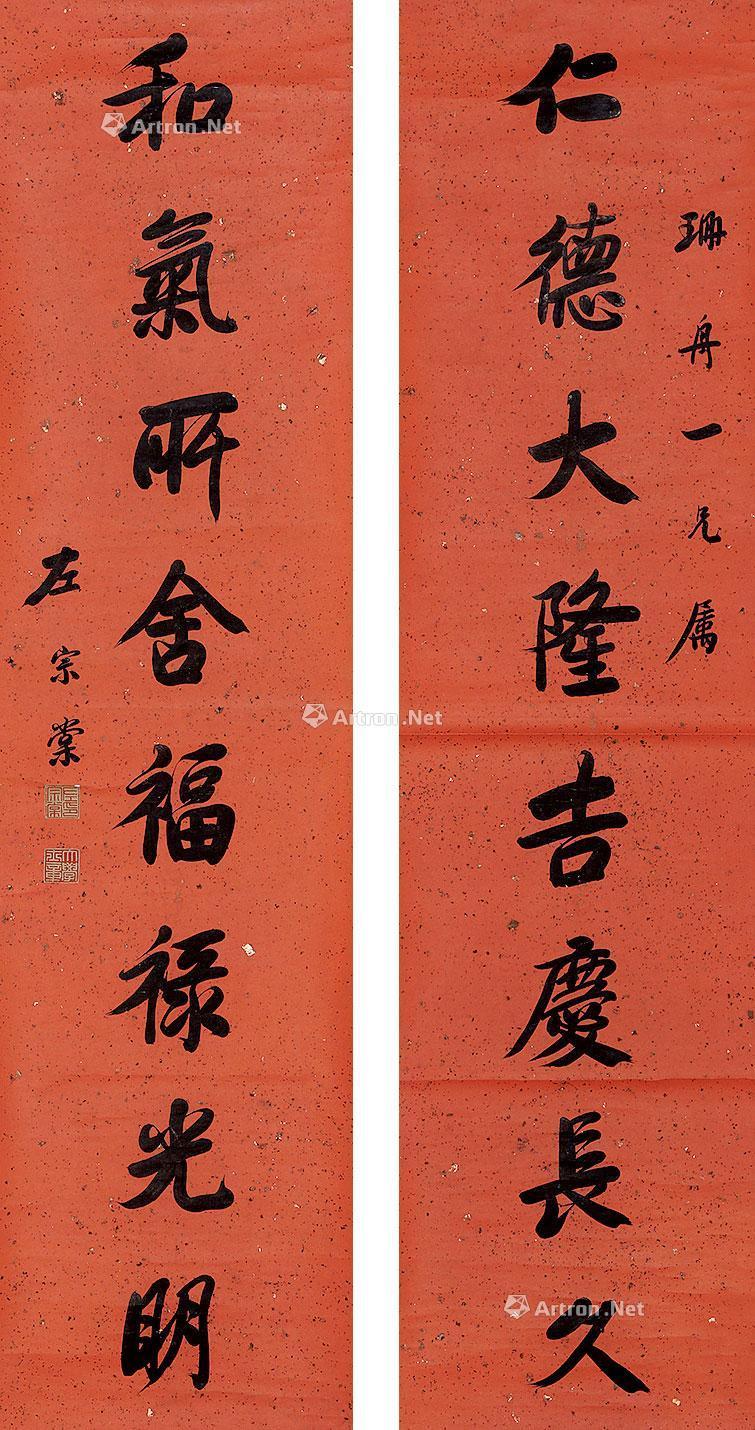 珊舟一兄属
仁德大隆吉慶長久
和氣所舍福禄光明
左宗棠
Artron.Net
Artron.Net
Artron.Net